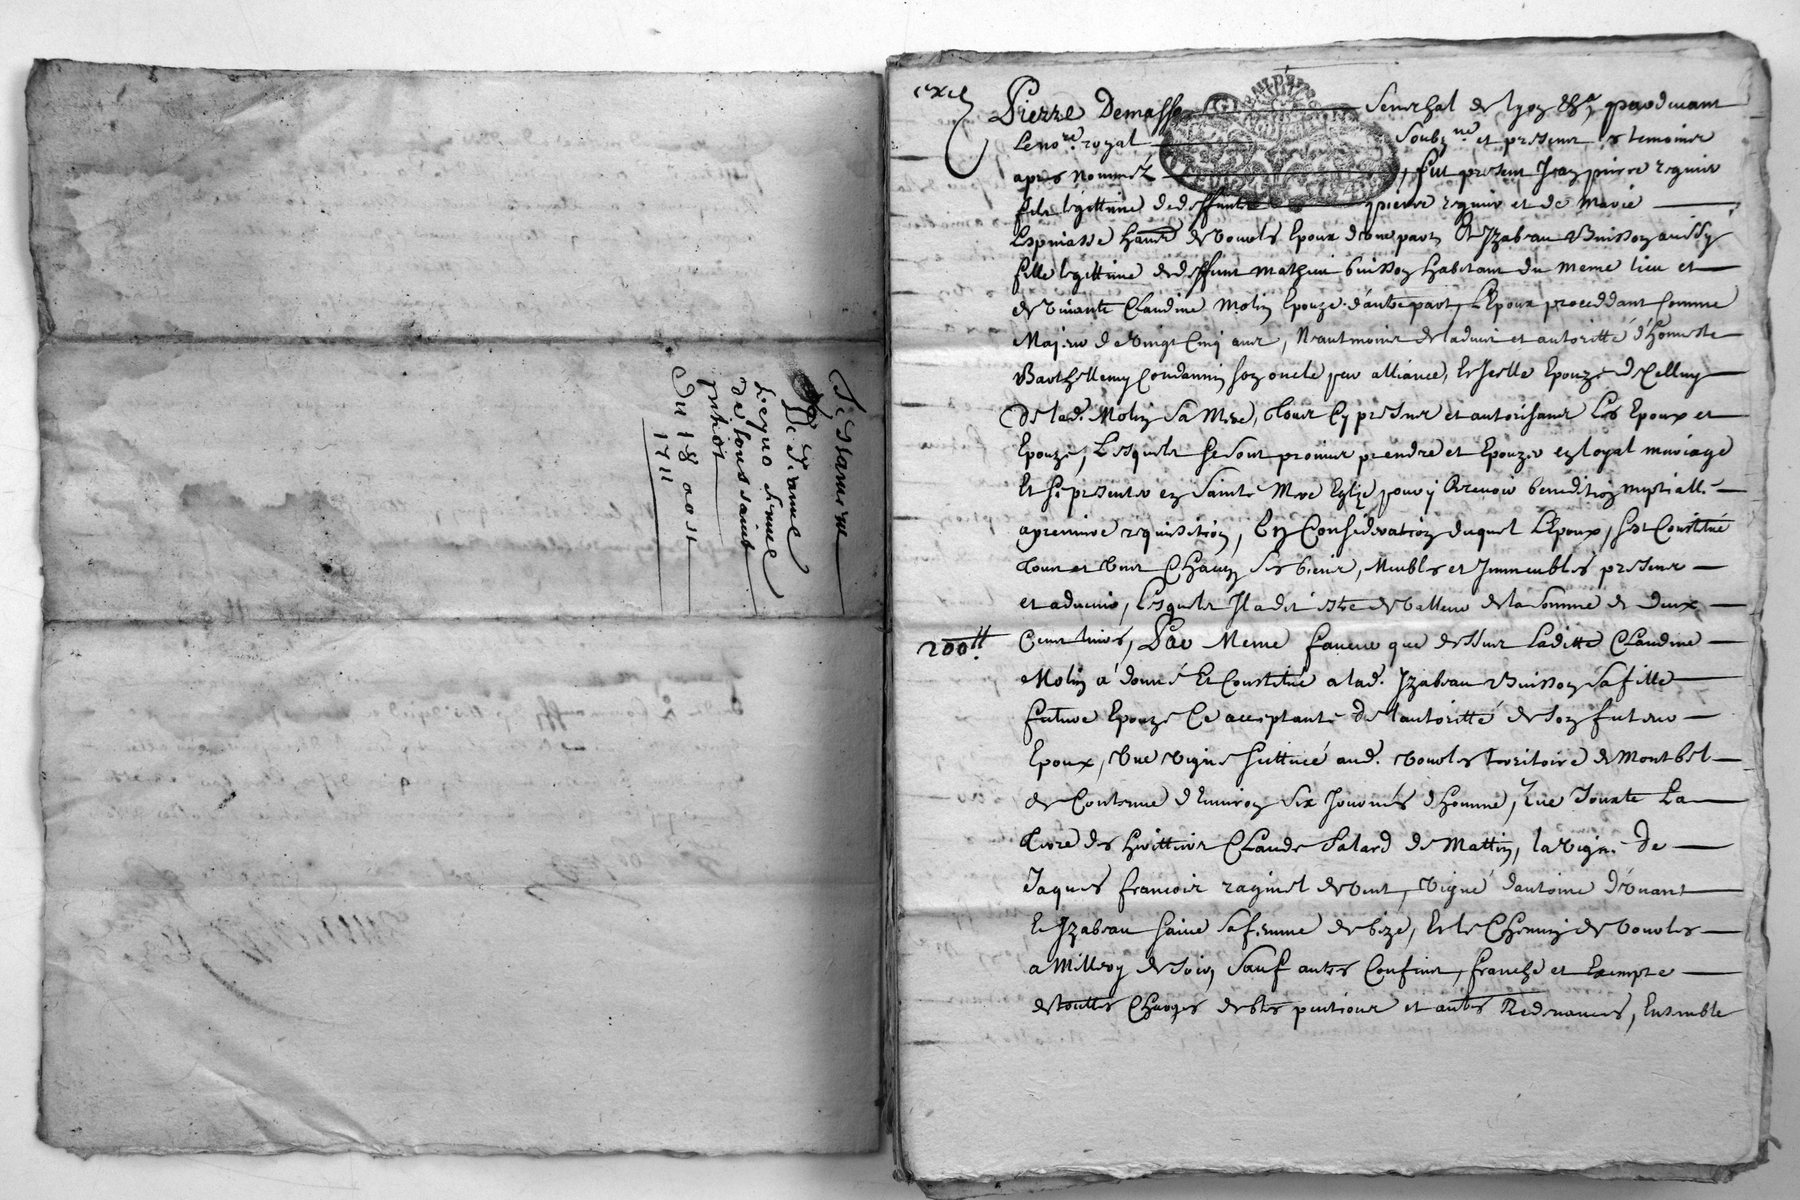 Testament
De Jeanne
Lequo femme
de toussaint
Du 18 aost
1711
exp
Pierre Demasso Senechal de lyon &a, pardevant
Le no.re royal soubz.né et presents les temoins
apres nomméz, fut present Jean pierre reguir
fils legittime de deffunt pierre reguir et de Marie
Espinasse habitt de vourles Epoux d'une part, Et Jzabeau Buisson aussy
fille legittime de deffunt mathieu buisson habitant du meme lieu et
de vivante Claudine Molin Epouze d'autre part, L'Epoux proceddant comme
Majeur de vingt Cinq ans, Neautmoins de ladvis et autoritté d'honneste
Barthellemy Condamin son oncle par alliance, Et Jcelle Epouze de Celluy
De lad. Molin sa Mere, tous Cy presens et autorisant Les Epoux et
Epouze, Lesquels se sont promis prendre et Epouzer en loyal mariage
Et se presenter en Sainte Mere Eglize pour y Recevoir benediction nuptialle
a premiere requisition, En Consideration duquel L'Epoux, sest Constitué
tous et uns Chacun ses biens, Meubles et Jmmeubles presens
et advenir, Lesquels Jl a dit estre de valleur de la somme de deux
200 ₶.
Cent livres, Par Meme faveur que dessus Laditte Claudine
Molin a donné Et Constitué a lad. Jzabeau Buisson sa fille
future Epouze Ce acceptante de l'autoritté de son futeur
Epoux, une vigne scittuée aud. vourles territoire de Montbel
de Contenue d'Environ six Journés d'homme, Jouxte La
terre des heritiers Claude Salard de Mattin, la vigne de
Jaques francois raginel de vent, vigne d'antoine
Et Jzabeau sa femme de bize, Et le Chemin de vourles
a Millery de soir, Sauf autres Confins, franche et Exempte
de touttes Charges debtes pentions et autres Redevances, Ensemble